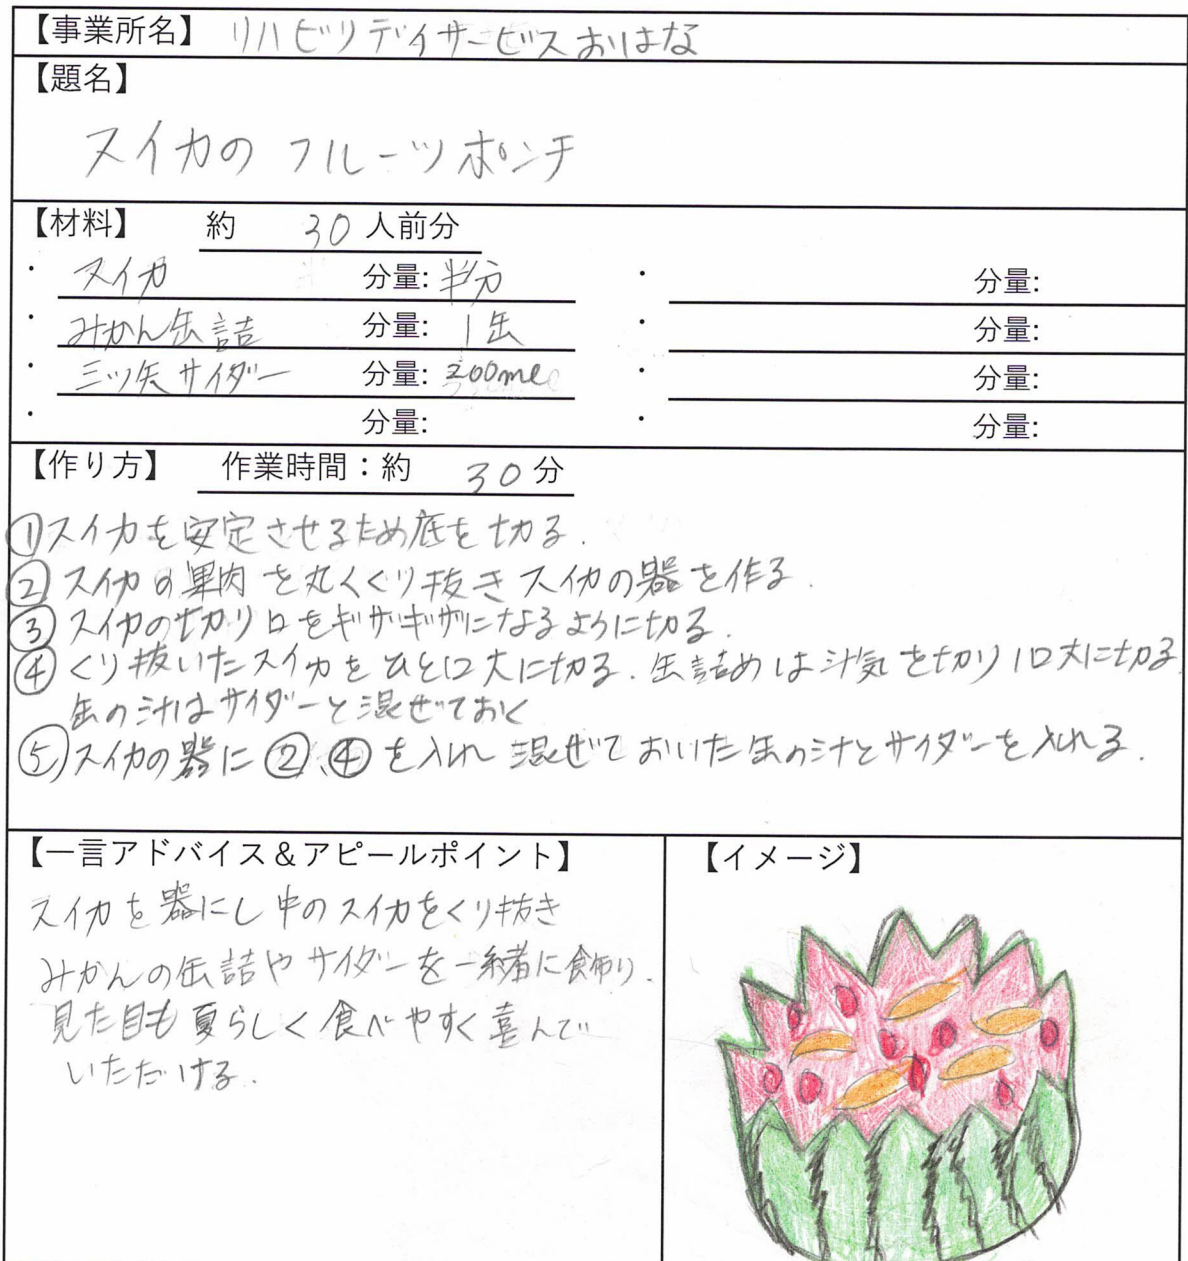 【事業所名】 リハビリデイサービスおはな
【題名】
スイカのフルーツポンチ
【材料】 約 30 人前分
・ スイカ 分量: 半分 ・ 分量:
・ みかん缶詰 分量: 1缶 ・ 分量:
・ 三ツ矢サイダー 分量: 200ml ・ 分量:
・ 分量: ・ 分量:
【作り方】 作業時間：約 30 分
①スイカを安定させるため底を切る.
②スイカの果肉を丸くくり抜きスイカの器を作る.
③スイカの切り口をギザギザになるように切る.
④くり抜いたスイカをひと口大に切る.缶詰めは汁気を切り1口大に切る
缶の汁はサイダーと混ぜておく
⑤スイカの器に②、④を入れ混ぜておいた缶の汁とサイダーを入れる.
【一言アドバイス＆アピールポイント】
スイカを器にし中のスイカをくり抜き
みかんの缶詰やサイダーを一緒に飾り.
見た目も夏らしく食べやすく喜んで
いただける.
【イメージ】